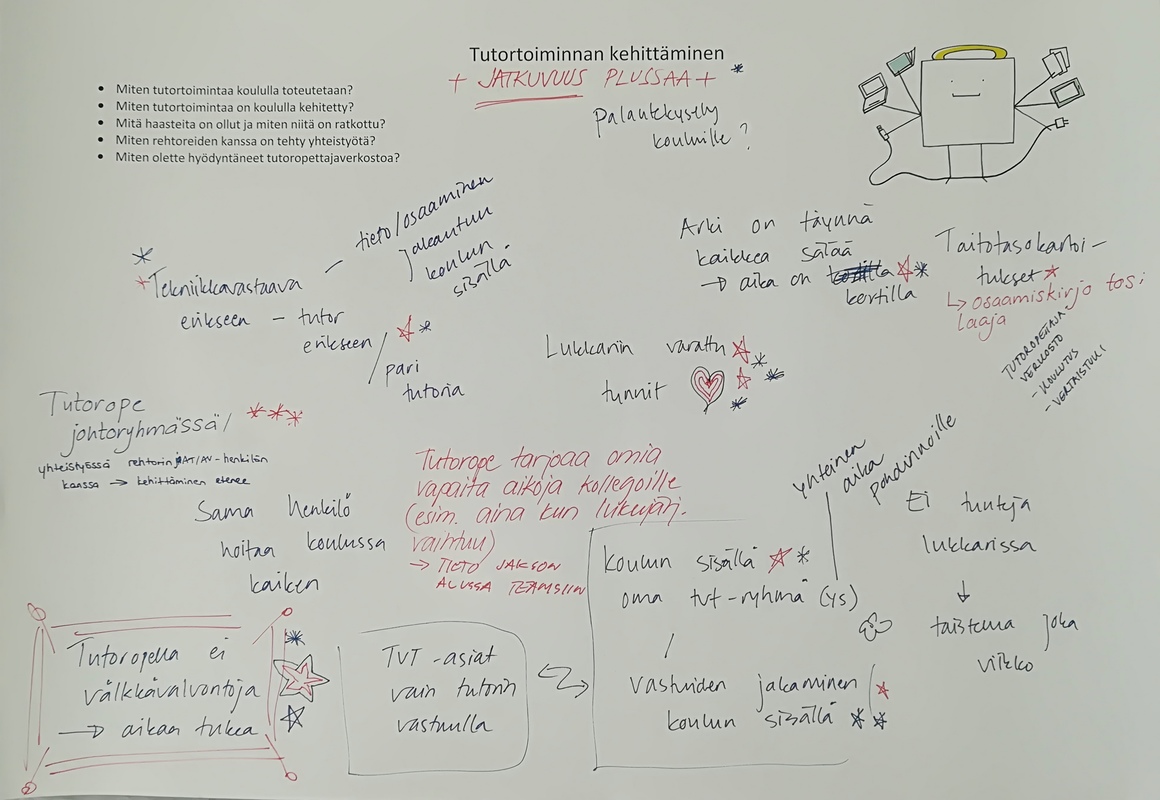 Tutortoiminnan kehittäminen
+ JATKUVUUS PLUSSAA +
• Miten tutortoimintaa koululla toteutetaan?
• Miten tutortoimintaa on koululla kehitetty?
• Mitä haasteita on ollut ja miten niitä on ratkottu?
• Miten rehtoreiden kanssa on tehty yhteistyötä?
• Miten olette hyödyntäneet tutoropettajaverkostoa?
Palautekysely
kouluille ?
Tekniikkavastaava
erikseen – tutor
erikseen /
pari
tutoria
– tieto/osaaminen
jakautuu
koulun
sisällä.
Arki on täynnä
kaikkea sälää
→ aika on
kortilla
Taitotasokartoi-
tukset
↳ osaamiskirjo tosi
laaja
TUTOROPETTAJA-
VERKOSTO
- KOULUTUS
- VERTAISTUKI
Lukkariin varattu
tunnit
Tutorope
johtoryhmässä /
yhteistyössä rehtorin ja AT/AV-henkilön
kanssa → kehittäminen etenee
Sama henkilö
hoitaa koulussa
kaiken
Tutorope tarjoaa omia
vapaita aikoja kollegoille
(esim. aina kun lukujärj.
vaihtuu)
→ TIETO JAKSON
ALUSSA TEAMSIIN
yhteinen
aika
pohdinnoille
koulun sisällä
oma tvt-ryhmä (ys)
/
Vastuiden jakaminen
koulun sisällä
Ei tunteja
lukkarissa
↓
taistelua joka
viikko
Tutoropella ei
välkkävalvontoja
→ aikaa tukea
TVT -asiat
vain tutorin
vastuulla